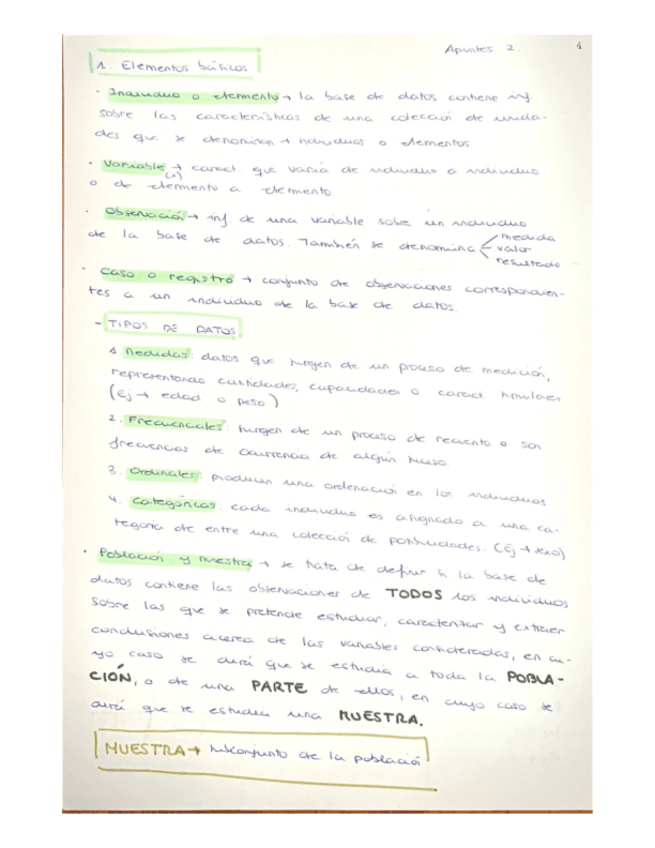 Apuntes 2. 1
1. Elementos básicos
· Individuo o elemento → la base de datos contiene inf.
sobre las características de una colección de unida-
des que se denominan → individuos o elementos
· Variable → caract. que varía de individuo a individuo
(x)
o de elemento a elemento.
· Observación → inf de una variable sobre un individuo
de la base de datos. También se denomina medida
valor
resultado
· Caso o registro → conjunto de observaciones correspondien-
tes a un individuo de la base de datos.
- TIPOS DE DATOS
1 Medidas: datos que surgen de un proceso de medición,
representando cantidades, capacidades o caract. similares
(Ej → edad o peso)
2. Frecuenciales: surgen de un proceso de recuento o son
frecuencias de ocurrencia de algún suceso.
3. Ordinales: producen una ordenación en los individuos
4. Categóricos: cada individuo es asignado a una ca-
tegoría de entre una colección de posibilidades. (Ej → sexo)
· Población y muestra → se trata de definir si la base de
datos contiene las observaciones de TODOS los individuos
sobre las que se pretende estudiar, caracterizar y extraer
conclusiones acerca de las variables consideradas, en cu-
yo caso se dirá que se estudia a toda la POBLA-
CIÓN, o de una PARTE de ellos, en cuyo caso se
dirá que se estudia una MUESTRA.
MUESTRA → subconjunto de la población